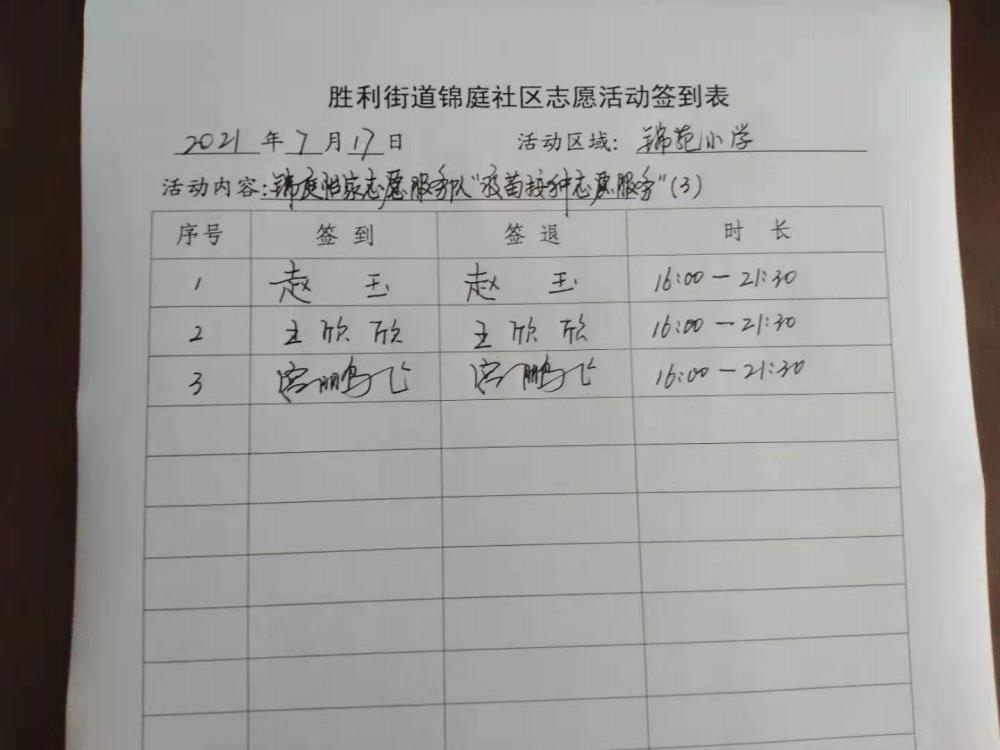 胜利街道锦庭社区志愿活动签到表
2021年7月17日 活动区域：锦苑小学
活动内容：锦庭怡家志愿服务队“疫苗接种志愿服务”（3）
序号 签到 签退 时长
1 赵玉 赵玉 16:00—21:30
2 王欣欣 王欣欣 16:00—21:30
3 鹏飞 鹏飞 16:00—21:30